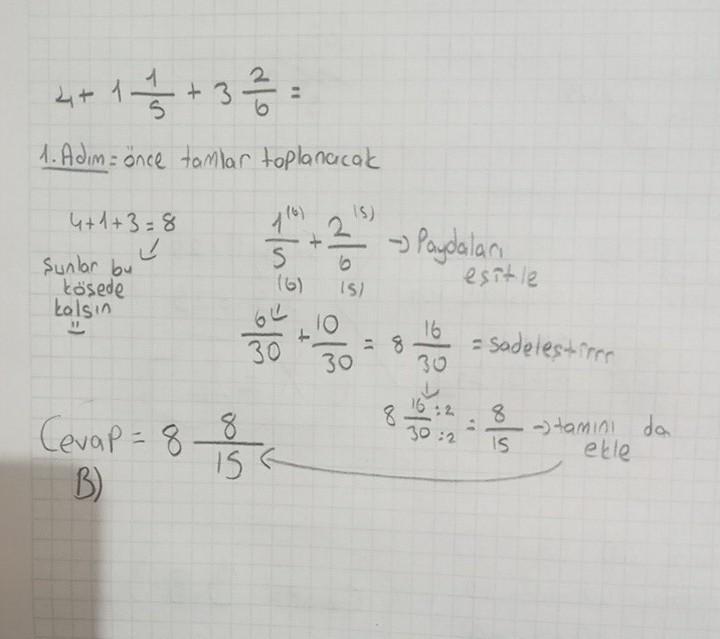 4+ 1 1/5 + 3 2/6 =
1.Adım= önce tamlar toplanacak
4+1+3=8
şunlar bu
köşede
kalsın
1(6)/5(6) + 2(5)/6(5) → Paydaları
eşitle
6/30 + 10/30 = 8 16/30 = sadeleştirrr
8 16:2/30:2 = 8/15 → tamını da
ekle
Cevap = 8 8/15
B)